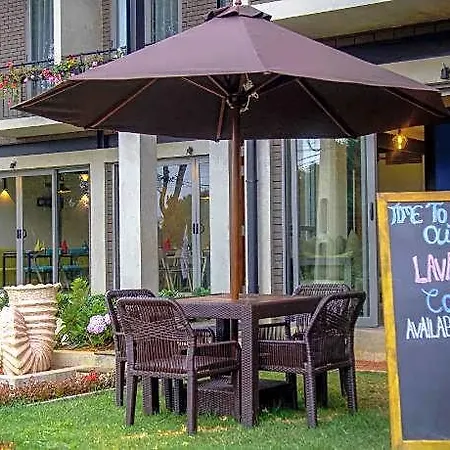 TIME TO
OU
LAV
CO
AVAILAB